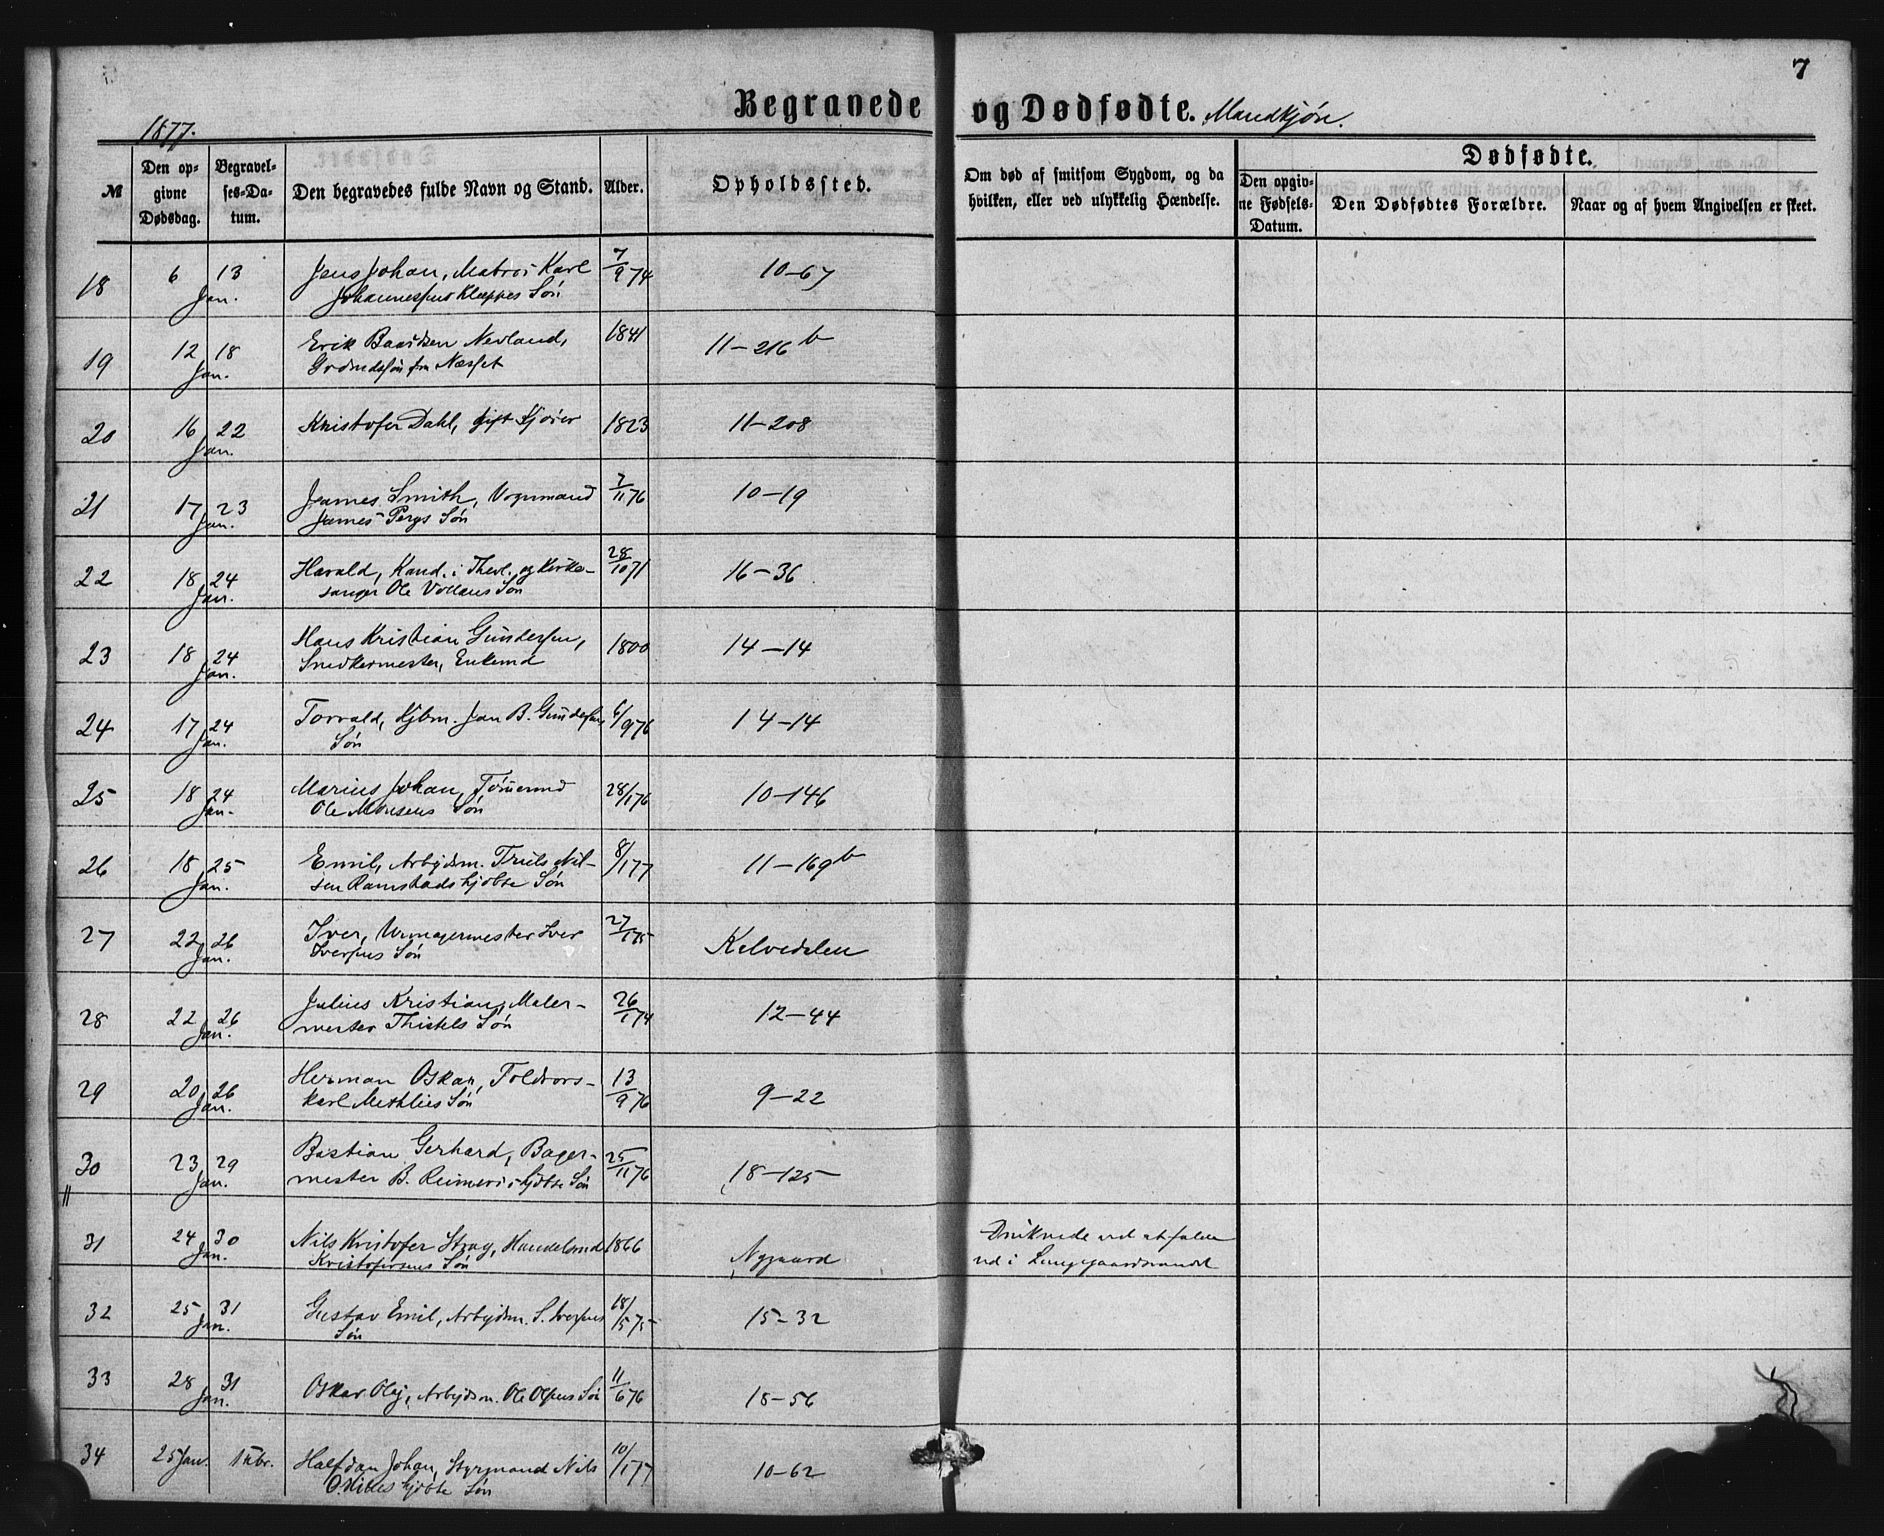 7
Begravede og Dødfødte. Mandkjøn.
1877.
№ Den opgivne Dødsdag. Begravelses-Datum. Den begravedes fulde Navn og Stand. Alder. Opholdssted. Om død af smitsom Sygdom, og da hvilken, eller ved ulykkelig Hændelse. Dødfødte. Den opgivne Fødsels-Datum. Den Dødfødtes Forældre. Naar og af hvem Angivelsen er skeet.
18 6 13 Jan. Jens Johan, Matros Karl 7/9 74 10-67
Johannessens Kleppes Søn
19 12 18 Jan. Erik Nevland, 1841 11-216 b
fra Næsset
20 16 22 Jan. Kristofer Dahl, gift 1823 11-208
21 17 23 Jan. James Smith, Vognmand 7/11 76 10-19
James Søn
22 18 24 Jan. Harald, Kand. i Theol. og Kirke- 28/10 71 16-36
sanger Ole Vollans Søn
23 18 24 Jan. Hans Kristian Gundersen, 1800 14-14
Snedkermester, Enkemd
24 17 24 Jan. Torvald, Kjbm. Jan B. Gundersens 6/9 76 14-14
Søn
25 18 24 Jan. Marius Johan, 28/1 76 10-146
Ole Monsens Søn
26 18 25 Jan. Emil, Arbejdsm. Truls Nil- 8/1 77 11-169 b
sen Ramstads hjdbte Søn
27 22 26 Jan. Iver, Urmagermester Iver 27/1 75 Kalvedalen
Iversens Søn
28 22 26 Jan. Julius Kristian, Maler- 26/1 74 12-44
mester Thistels Søn
29 20 26 Jan. Herman Oskar, Toldrors- 13/9 76 9-22
karl Søn
30 23 29 Jan. Bastian Gerhard, Bager- 25/11 76 18-125
mester B. Reimers's hjdbte Søn
31 24 30 Jan. Nils Kristofer, Handelsmd 1866 Nygaard Druknede ved at falde
Kristofersens Søn ud i Lungegaardsvandet
32 25 31 Jan. Gustav Emil, Arbejdsm. S. Iversens 18/5 75 15-32
Søn
33 28 31 Jan. Oskar Olaj, Arbejdsm. Ole Olsens Søn 11/6 76 18-56
34 25 Jan. 1 Febr. Halfdan Johan, Styrmand Nils 10/1 77 10-62
hjdbte Søn